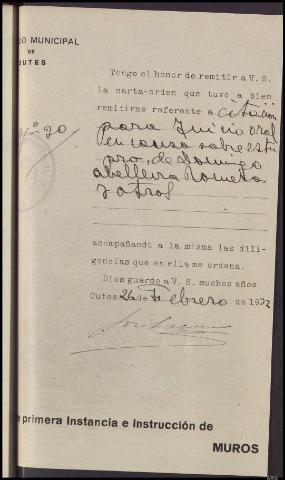 O MUNICIPAL
DE
OUTES
Tengo el honor de remitir a V. S.
la carta-orden que tuvo a bien
remitirme referente a citacion
para Juicio oral
Nº 20
en causa sobre estu
pro, de Domingo
Abelleira Romero
y otros
acompañando a la misma las dili-
gencias que en ella me ordena.
Dios guarde a V. S. muchos años
Outes 26 de Febrero de 1932
e primera Instancia e Instrucción de
MUROS